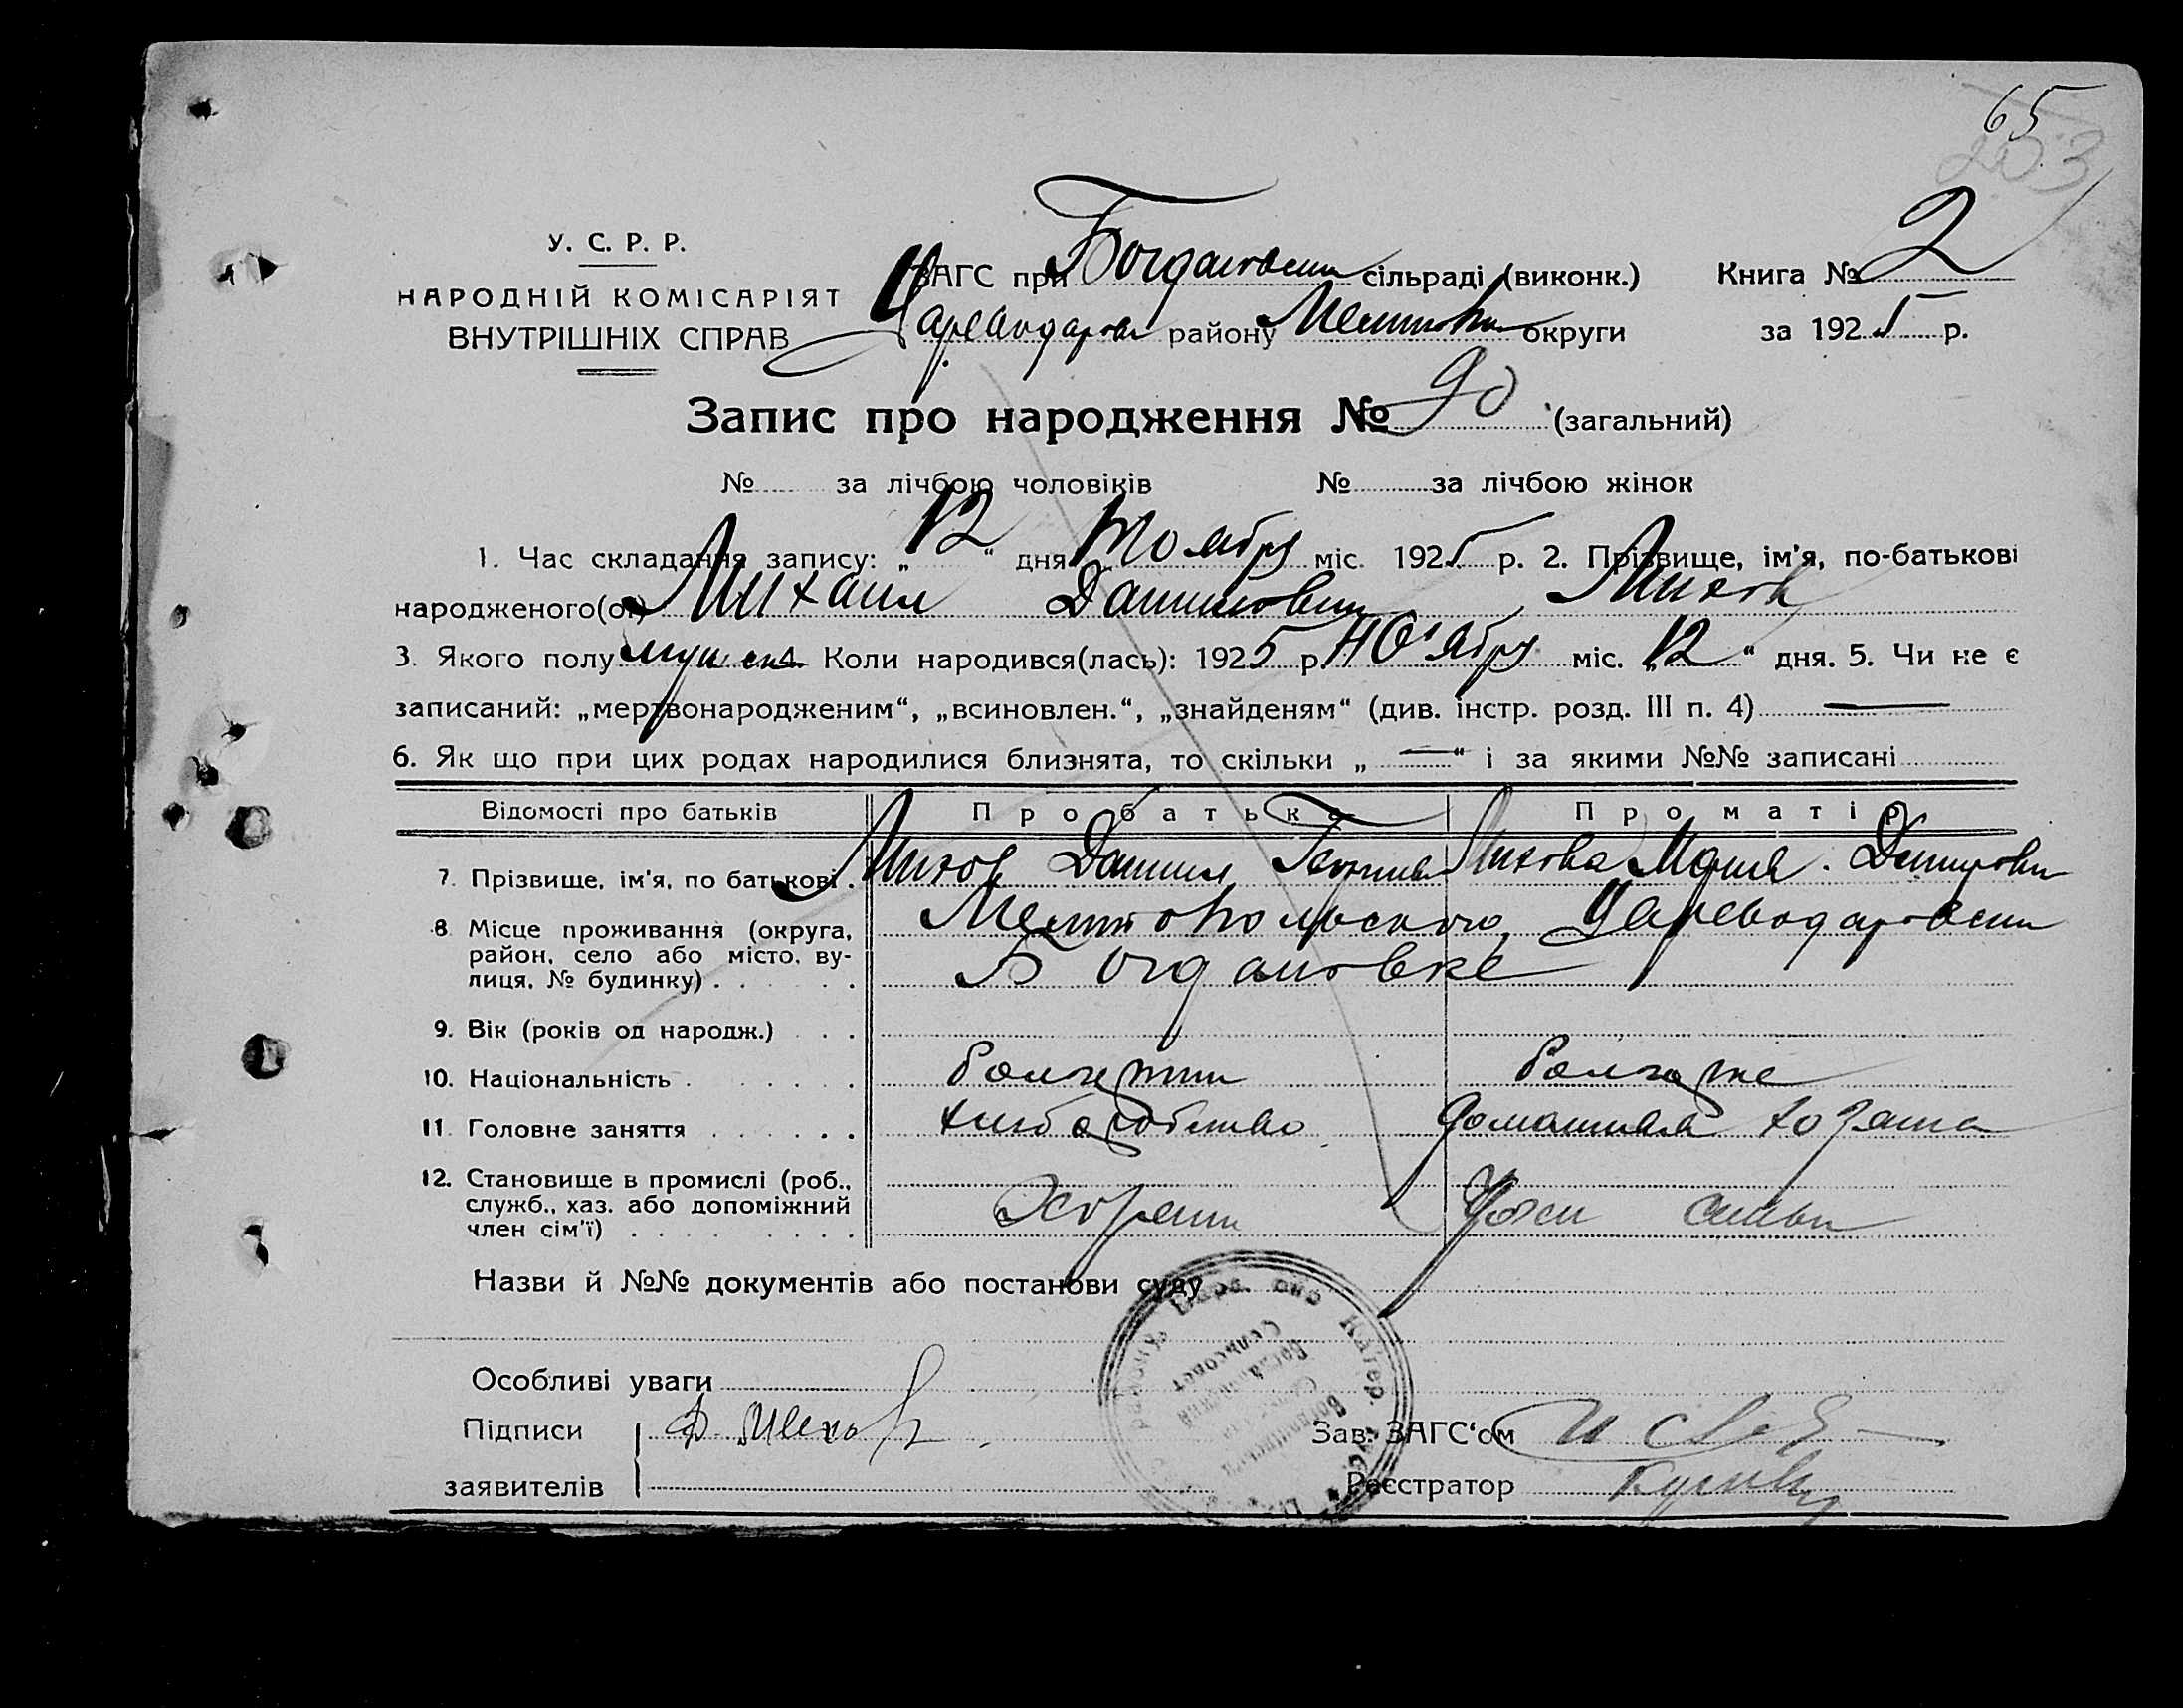 65
203
У. С. Р. Р.
НАРОДНІЙ КОМІСАРІЯТ
ВНУТРІШНІХ СПРАВ
ЗАГС при Богдановском сільраді (виконк.) Книга № 2
Цареводаров району Мелитоп округи за 1925 р.
Запис про народження № 90 (загальний)
№ за лічбою чоловіків № за лічбою жінок
1. Час складання запису: „12“ дня Ноября міс. 1925 р. 2. Прізвище, ім'я, по-батькові
народженого(ої) Михаил Данилович, Михов
3. Якого полу мужск 4. Коли народився(лась): 1925 р. Ноября міс. „12“ дня. 5. Чи не є
записаний: „мертвонародженим“, „всиновлен.“, „знайденям“ (див. інстр. розд. III п. 4) —
6. Як що при цих родах народилися близнята, то скільки „—“ і за якими №№ записані
Відомості про батьків Про батька Про матір
7. Прізвище, ім'я, по батькові. Михов Данил Михова Мария. Дмитрови
8. Місце проживання (округа, Мелитопольского, Цареводаровски
район, село або місто, ву-
лиця, № будинку) . . . . . Богдановке
9. Вік (років од народж.) . . .
10. Національність . . . . . . . болгарин болгарке
11. Головне заняття . . . . . . хлiборобство домашняя хозяика
12. Становище в промислі (роб.,
служб., хаз. або допоміжний
член сім'ї) . . . . . . . . Хозяин член семьи
Назви й №№ документів або постанови суду
Особливі уваги
Підписи Д. Михов Зав. ЗАГС'ом
заявителів Реєстратор